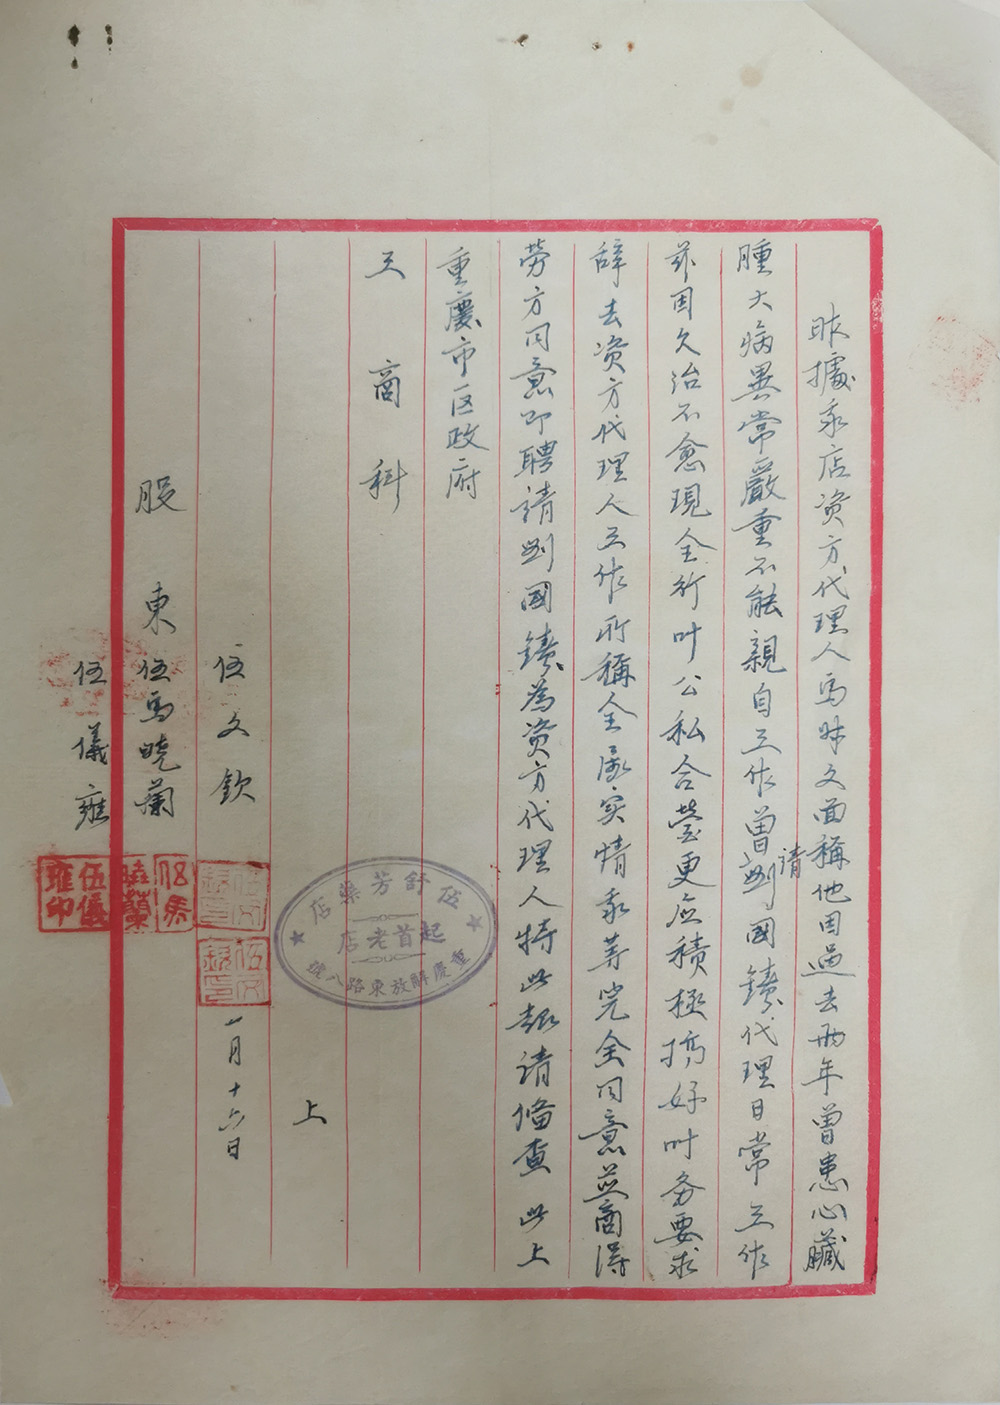 昨據承店资方代理人馬昧文面稱他因過去两年曾患心臟
腫大病異常嚴重不能親自工作曾請劉國鑄代理日常工作
兹因久治不愈現全行叶公私合营更应積極搞好叶务要求
辞去资方代理人工作所稱全属实情承等完全同意並商得
劳方同意即聘請劉國鑄為资方代理人特此報请俻查 此上
重慶市区政府
工商科
上
伍文欽
一月十六日
股東 伍馬曉蘭
伍儀雍
伍舒芳藥店
起首老店
重慶解放東路八號
伍馬曉蘭
伍儀雍印